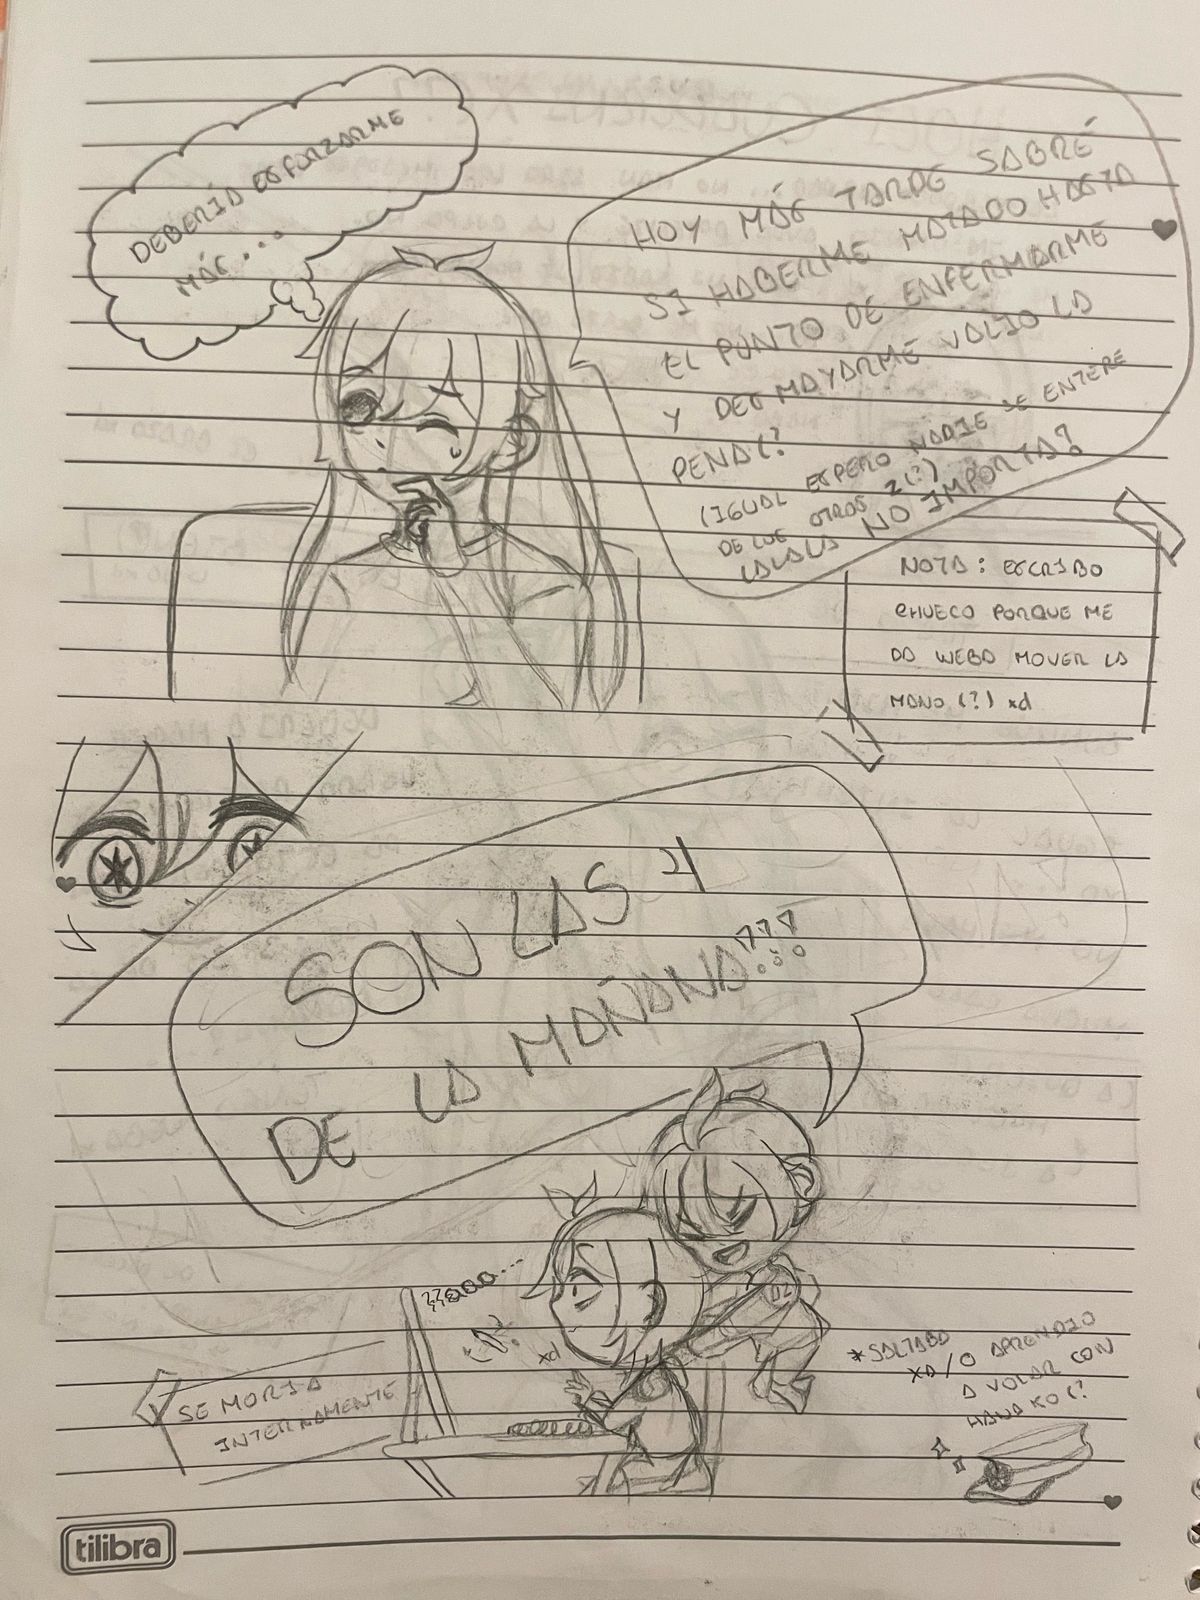 DEBERÍA ESFORZARME
MÁS...
HOY MÁS TARDE SABRÉ
SI HABERME MATADO HASTA
EL PUNTO DE ENFERMARME
Y DESMAYARME VALIO LA
PENA(?
(IGUAL ESPERO NADIE SE ENTERE
DE LOS OTROS 2(?)
LALALA NO IMPORTA?
NOTA: ESCRIBO
CHUECO PORQUE ME
DA WEBA MOVER LA
MANO (?) xd
SON LAS 4
DE LA MAÑANA???
xd
SE MORIA
INTERNAMENTE
*SALTABA
XD/O APRENDIO
A VOLAR CON
HANAKO(?
tilibra